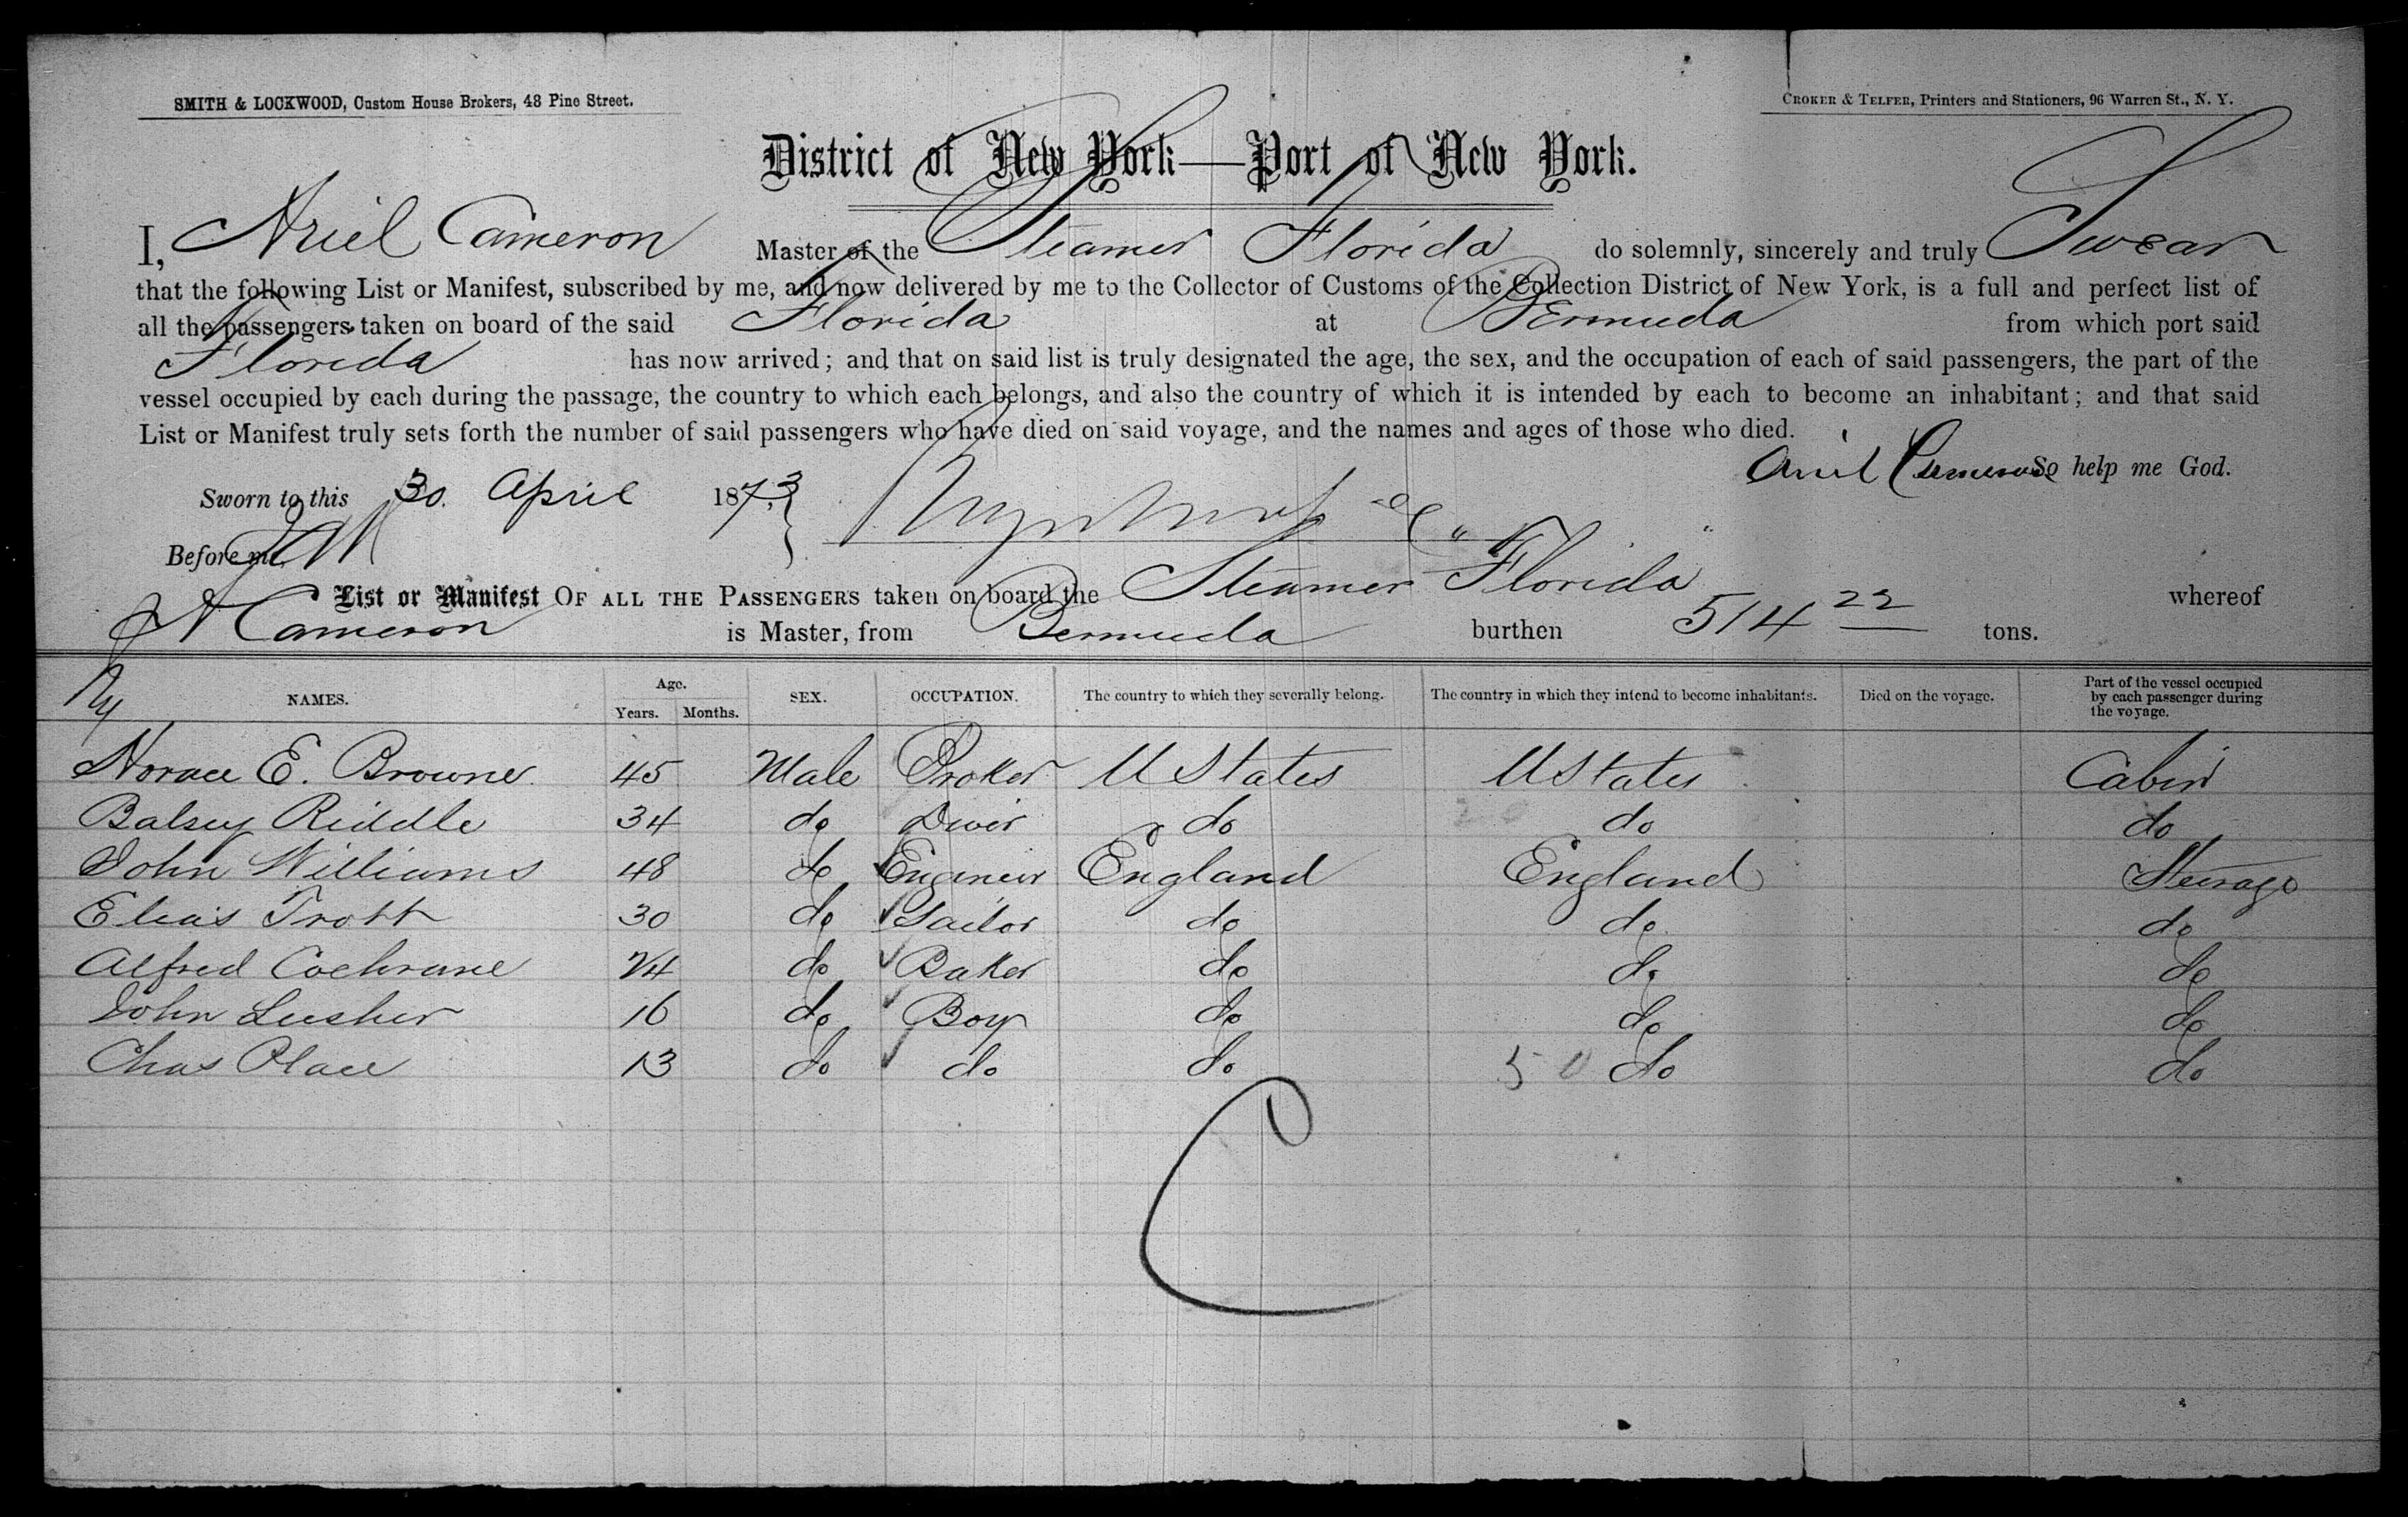 SMITH & LOCKWOOD, Custom House Brokers, 48 Pine Street.
CROKER & TELFER, Printers and Stationers, 96 Warren St., N. Y.
District of New York—Port of New York.
I, Ariel Cameron Master of the Steamer Florida do solemnly, sincerely and truly Swear
that the following List or Manifest, subscribed by me, and now delivered by me to the Collector of Customs of the Collection District of New York, is a full and perfect list of
all the passengers taken on board of the said Florida at Bermuda from which port said
Florida has now arrived; and that on said list is truly designated the age, the sex, and the occupation of each of said passengers, the part of the
vessel occupied by each during the passage, the country to which each belongs, and also the country of which it is intended by each to become an inhabitant; and that said
List or Manifest truly sets forth the number of said passengers who have died on said voyage, and the names and ages of those who died.
Ariel Cameron So help me God.
Sworn to this 30. April 1873
Before me,
List or Manifest OF ALL THE PASSENGERS taken on board the Steamer Florida whereof
A Cameron is Master, from Bermuda burthen 514 22 tons.
NAMES. Age. Years. Months. SEX. OCCUPATION. The country to which they severally belong. The country in which they intend to become inhabitants. Died on the voyage. Part of the vessel occupied by each passenger during the voyage.
Horace E. Browne 45 Male Broker U States U States Cabin
Balsey Riddle 34 do Diver do do do
John Williams 48 do Engineer England England Steerage
Elias Trott 30 do Sailor do do do
Alfred Cochrane 24 do Baker do do do
John Lusher 16 do Boy do do do
Chas Place 13 do do do 50 do do
C